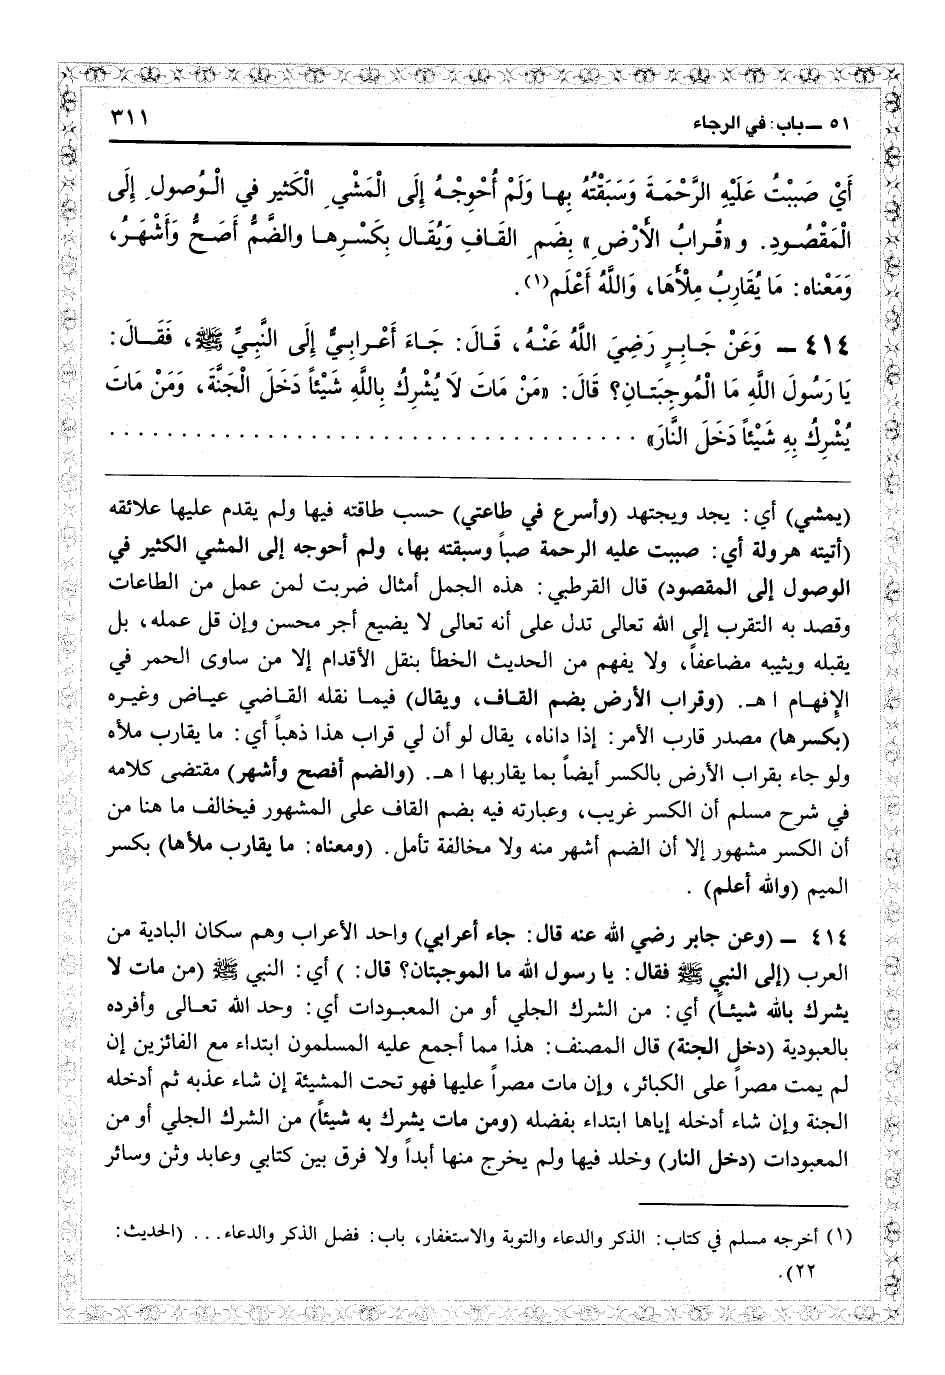 ٥١ ــ باب: في الرجاء ٣١١
أَيْ صَبَبْتُ عَلَيْهِ الرَّحْمَةَ وَسَبَقْتُهُ بِهَا وَلَمْ أُحْوِجْهُ إِلَى الْمَشْيِ الْكَثِيرِ فِي الْوُصُولِ إِلَى
الْمَقْصُودِ. و «قُرابُ الْأَرْضِ» بِضَمِ القَافِ وَيُقَال بِكَسْرِهَا والضَّمُّ أَصَحُّ وَأَشْهَرُ،
وَمَعْناه: مَا يُقَارِبُ مِلْأَهَا، وَاللَّهُ أَعْلَم(١).
٤١٤ ــ وَعَنْ جَابِرٍ رَضِيَ اللَّهُ عَنْهُ، قَالَ: جَاءَ أَعْرابِيٌّ إِلَى النَّبِيِّ ﷺ، فَقَالَ:
يَا رَسُولَ اللَّهِ مَا الْمُوجِبَتانِ؟ قَالَ: «مَنْ مَاتَ لَا يُشْرِكُ بِاللَّهِ شَيْئاً دَخَلَ الْجَنَّةَ، وَمَنْ مَاتَ
يُشْرِكُ بِهِ شَيْئاً دَخَلَ النَّارَ» . . . . . . . . . . . . . . . . . . . . . . . . . . . . . . . . . . . . . .
(يمشي) أي: يجد ويجتهد (وأسرع في طاعتي) حسب طاقته فيها ولم يقدم عليها علائقه
(أتيته هرولة أي: صببت عليه الرحمة صباً وسبقته بها، ولم أحوجه إلى المشي الكثير في
الوصول إلى المقصود) قال القرطبي: هذه الجمل أمثال ضربت لمن عمل من الطاعات
وقصد به التقرب إلى الله تعالى تدل على أنه تعالى لا يضيع أجر محسن وإن قل عمله، بل
يقبله ويثيبه مضاعفاً، ولا يفهم من الحديث الخطأ بنقل الأقدام إلا من ساوى الحمر في
الإفهام ا هـ. (وقراب الأرض بضم القاف، ويقال) فيما نقله القاضي عياض وغيره
(بكسرها) مصدر قارب الأمر: إذا داناه، يقال لو أن لي قراب هذا ذهباً أي: ما يقارب ملأه
ولو جاء بقراب الأرض بالكسر أيضاً بما يقاربها ا هـ. (والضم أفصح وأشهر) مقتضى كلامه
في شرح مسلم أن الكسر غريب، وعبارته فيه بضم القاف على المشهور فيخالف ما هنا من
أن الكسر مشهور إلا أن الضم أشهر منه ولا مخالفة تأمل. (ومعناه: ما يقارب ملأها) بكسر
الميم (والله أعلم) .
٤١٤ ــ (وعن جابر رضي الله عنه قال: جاء أعرابي) واحد الأعراب وهم سكان البادية من
العرب (إلى النبي ﷺ فقال: يا رسول الله ما الموجبتان؟ قال: ) أي: النبي ﷺ (من مات لا
يشرك بالله شيئاً) أي: من الشرك الجلي أو من المعبودات أي: وحد الله تعالى وأفرده
بالعبودية (دخل الجنة) قال المصنف: هذا مما أجمع عليه المسلمون ابتداء مع الفائزين إن
لم يمت مصراً على الكبائر، وإن مات مصراً عليها فهو تحت المشيئة إن شاء عذبه ثم أدخله
الجنة وإن شاء أدخله إياها ابتداء بفضله (ومن مات يشرك به شيئاً) من الشرك الجلي أو من
المعبودات (دخل النار) وخلد فيها ولم يخرج منها أبداً ولا فرق بين كتابي وعابد وثن وسائر
(١) أخرجه مسلم في كتاب: الذكر والدعاء والتوبة والاستغفار، باب: فضل الذكر والدعاء... (الحديث:
٢٢).